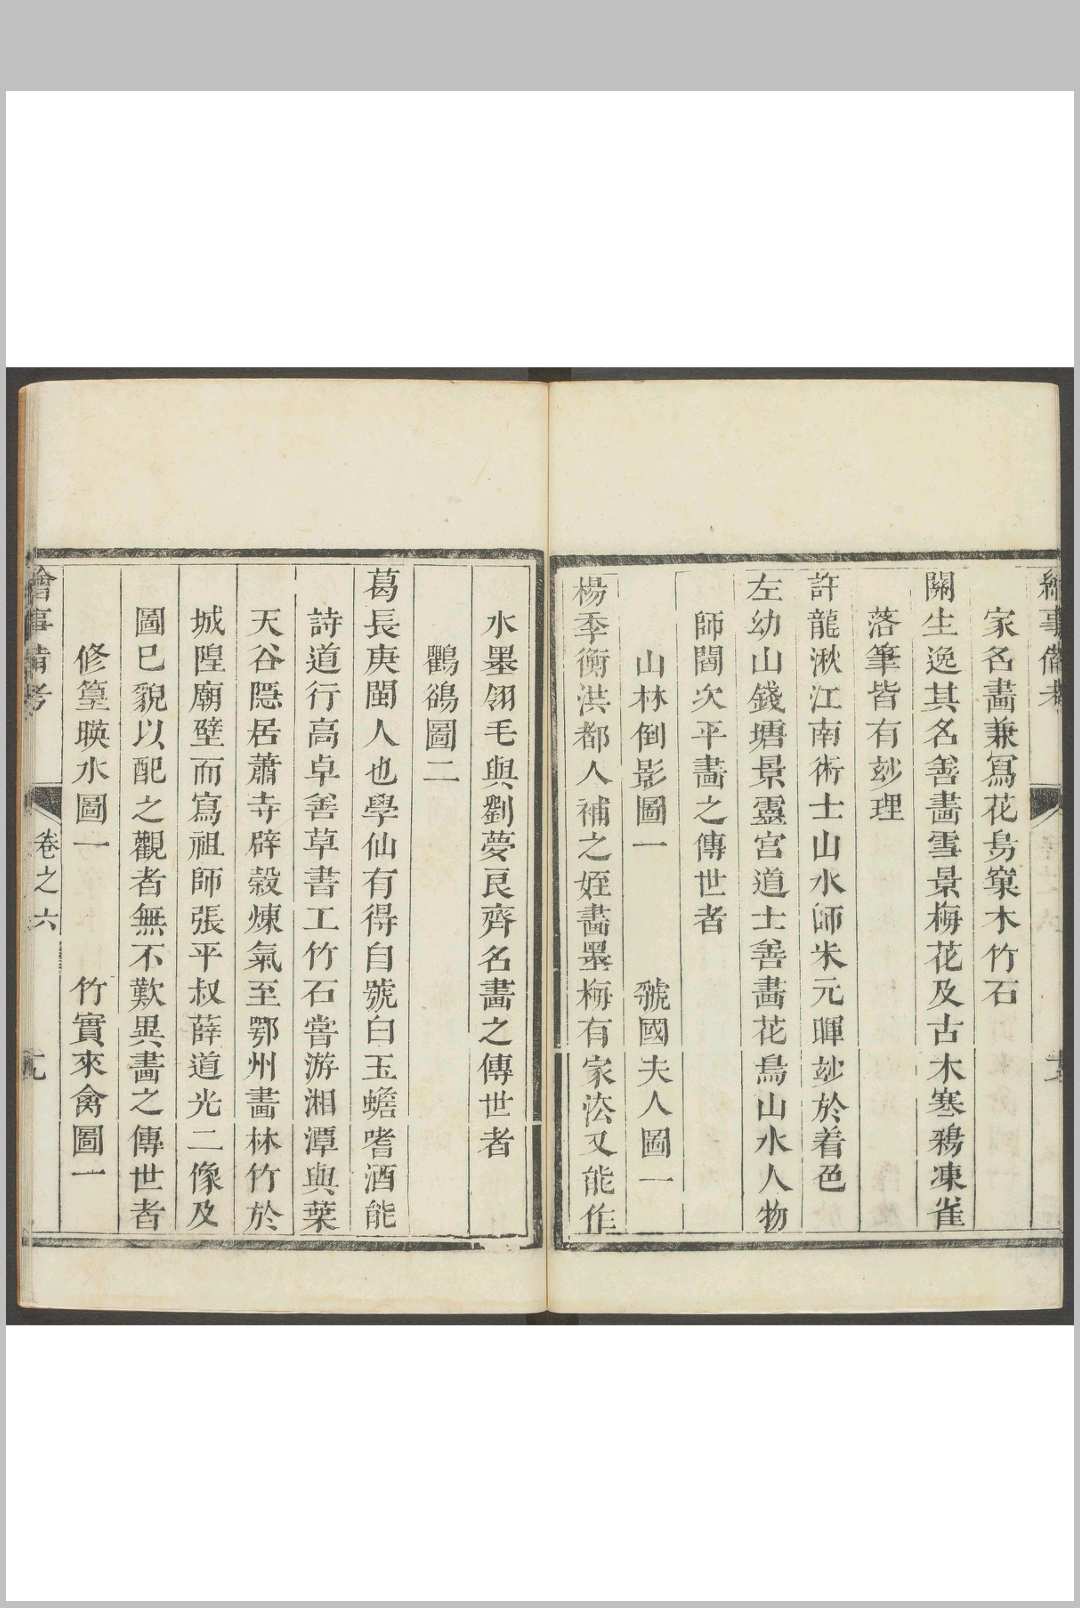 繪事備考
家名畫兼寫花鳥窠木竹石
關生逸其名善畫雪景梅花及古木寒鴉凍雀
落筆皆有妙理
許龍湫江南術士山水師米元暉妙於着色
左幼山錢塘景靈宮道士善畫花鳥山水人物
師閻次平畫之傳世者
山林倒影圖一　　　虢國夫人圖一
楊季衡洪都人補之姪畫墨梅有家法又能作
水墨翎毛與劉夢良齊名畫之傳世者
鸜鵒圖二
葛長庚閩人也學仙有得自號白玉蟾嗜酒能
詩道行高卓善草書工竹石嘗游湘潭與葉
天谷隱居蕭寺辟穀煉氣至鄂州畫林竹於
城隍廟壁而寫祖師張平叔薛道光二像及
圖已貌以配之觀者無不歎異畫之傳世者
修篁暎水圖一　　　竹實來禽圖一
繪事備考　卷之六